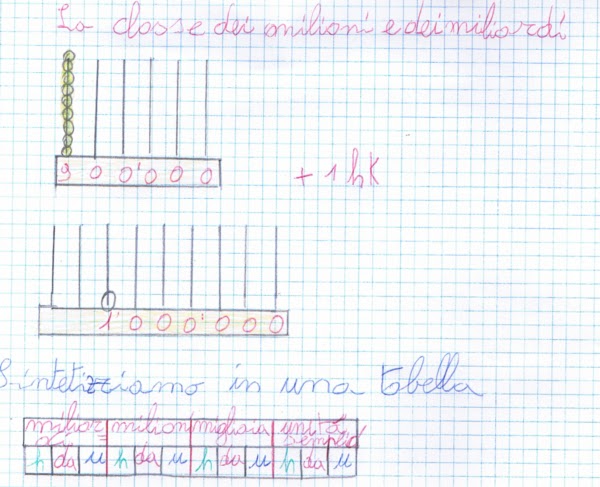 La classe dei milioni e dei miliardi
9 0 0'0 0 0
+ 1 hK
1'0 0 0'0 0 0
Sintetizziamo in una tabella
miliar= milioni migliaia unità
di semplici
h da u h da u h da u h da u